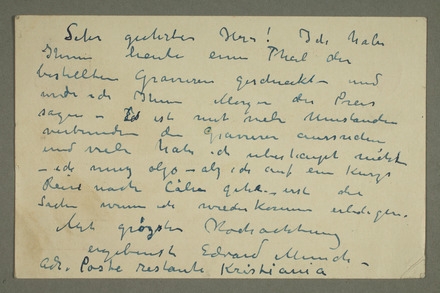 Sehr geehrter Herr! Ich habe
Ihnen heute einen Theil der
bestellten Gravuren geschickt – und
werde ich Ihnen Morgen den Preis
sagen – Es ist mit viele Umstanden
verbunden die Gravuren aussuchen
und viele habe ich uberhaupt nicht
– ich muss also – als ich auf eine kurze
Reise nach Cöln gehe – erst die
Sachen wenn ich wieder komme erledigen.
Mit grösster Hochachtung
ergebenst Edvard Munch –
adr. Poste restante, Kristiania